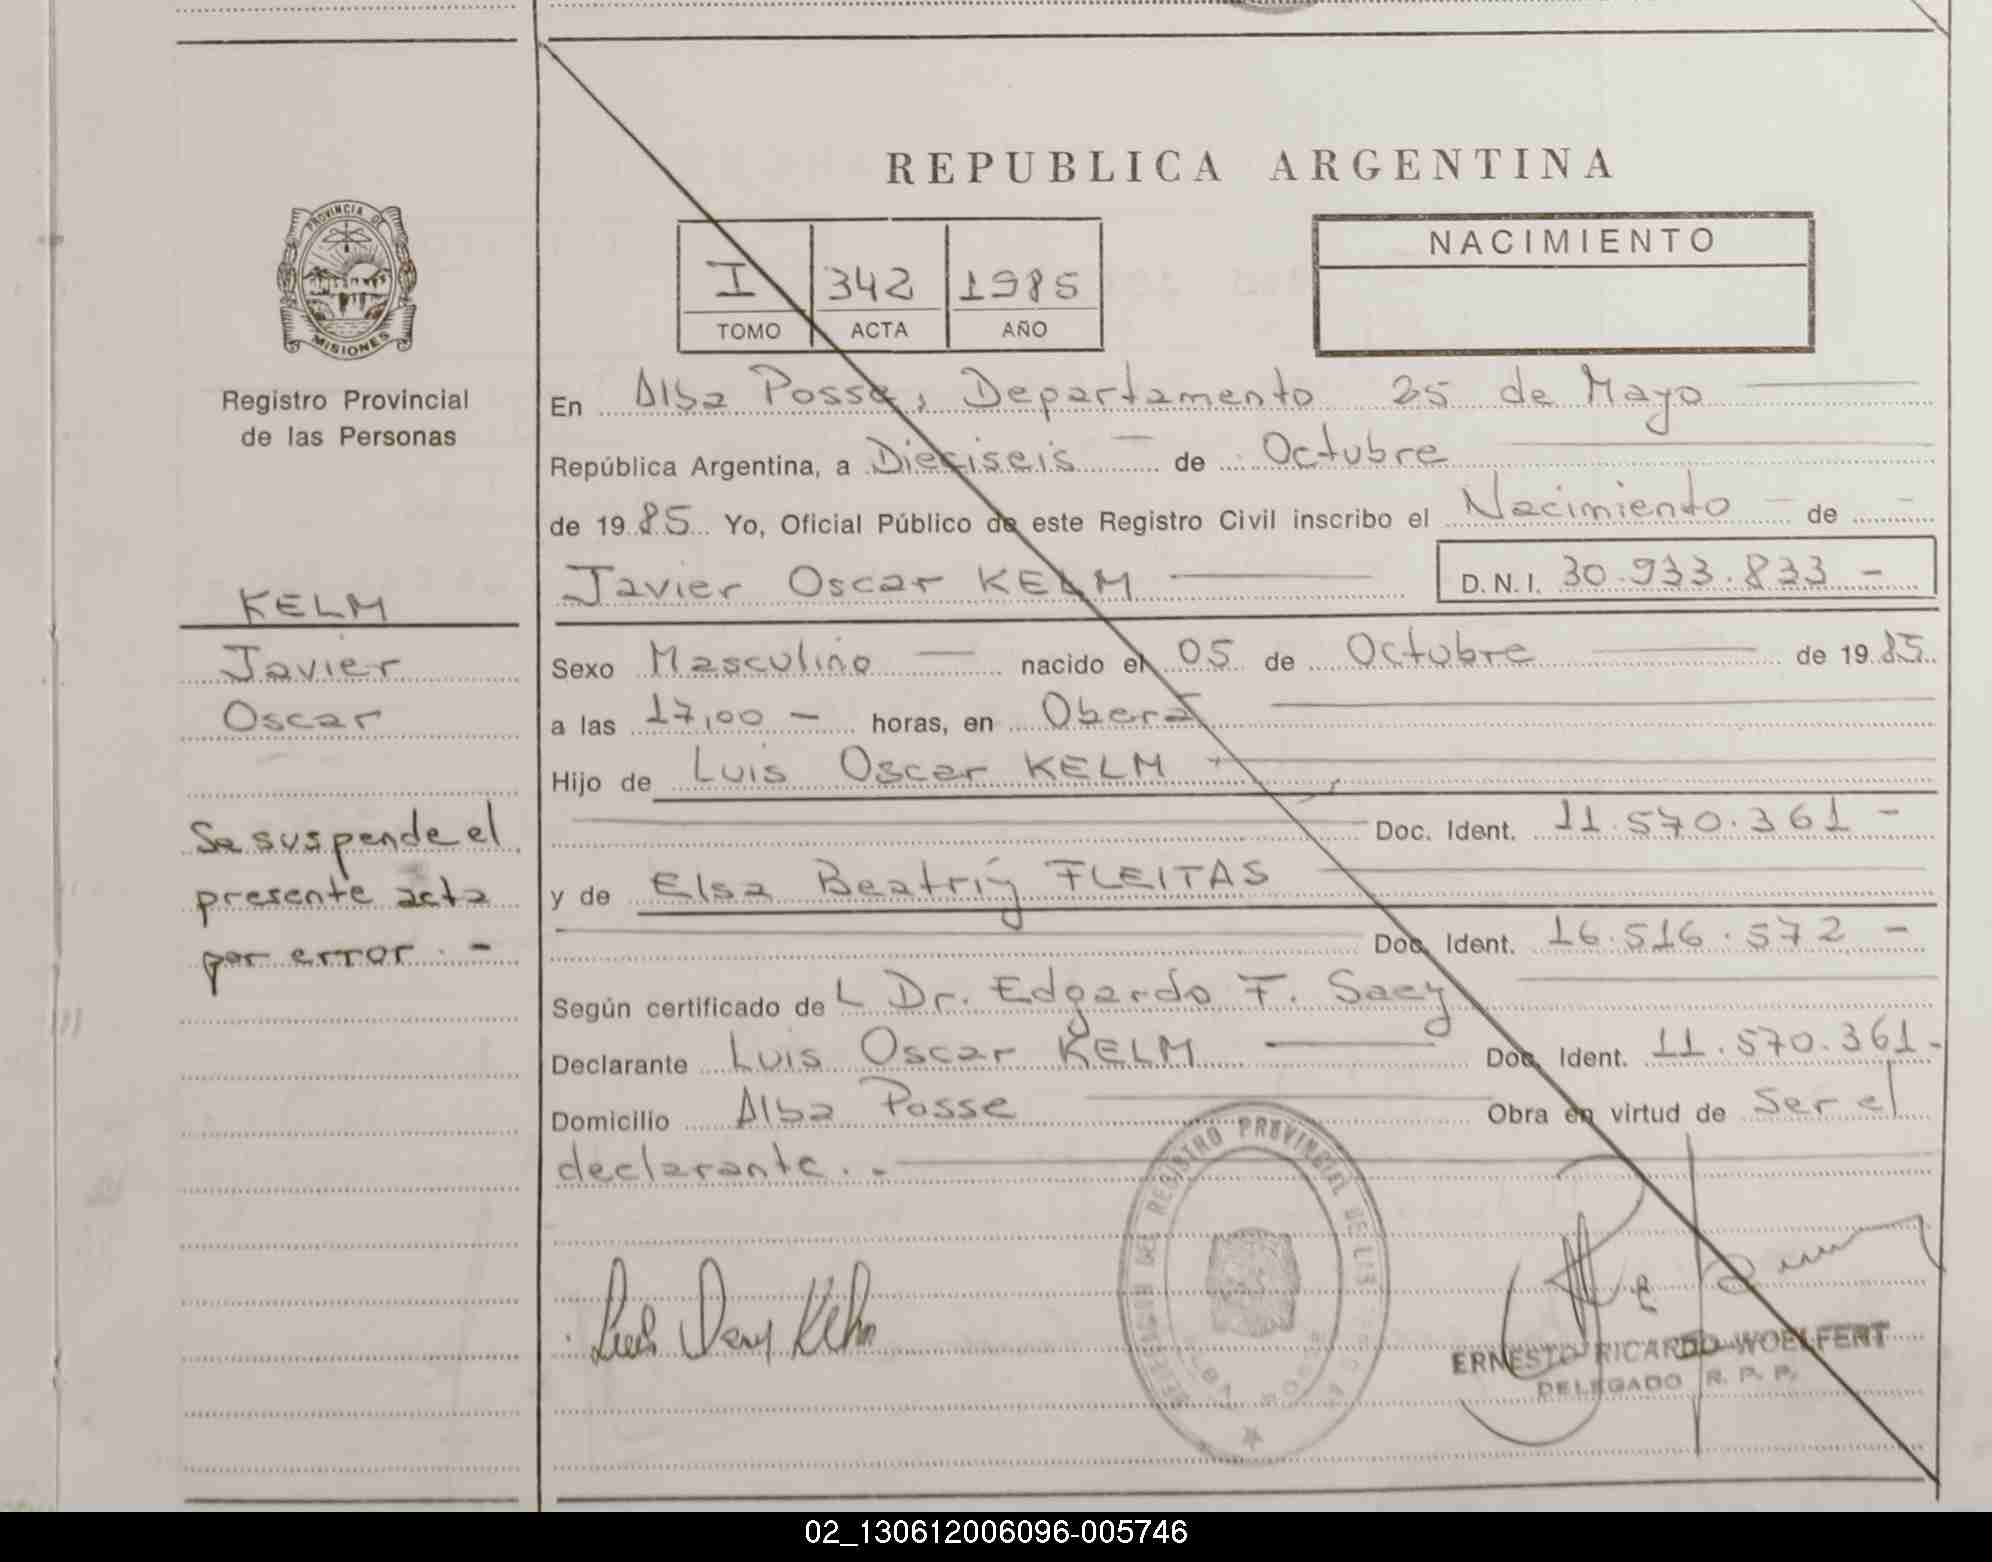 REPUBLICA ARGENTINA
PROVINCIA DE
MISIONES
Registro Provincial
de las Personas
I 342 1985
TOMO ACTA AÑO
NACIMIENTO
En Alba Posse, Departamento 25 de Mayo
República Argentina, a Dieciseis de Octubre
de 1985 Yo, Oficial Público de este Registro Civil inscribo el Nacimiento de
Javier Oscar KELM D.N.I. 30.933.833 -
KELM
Javier
Oscar
Se suspende el
presente acta
por error. -
Sexo Masculino nacido el 05 de Octubre de 1985
a las 17,00 - horas, en Oberá
Hijo de Luis Oscar KELM
Doc. Ident. 11.570.361 -
y de Elsa Beatriz FLEITAS
Doc. Ident. 16.516.572 -
Según certificado de L Dr. Edgardo F. Saez
Declarante Luis Oscar KELM Doc. Ident. 11.570.361-
Domicilio Alba Posse Obra en virtud de ser el
declarante. -
DELEGACION DEL REGISTRO PROVINCIAL DE LAS
ALBA POSSE
ERNESTO RICARDO WOELFERT
DELEGADO R. P. P.
02_130612006096-005746